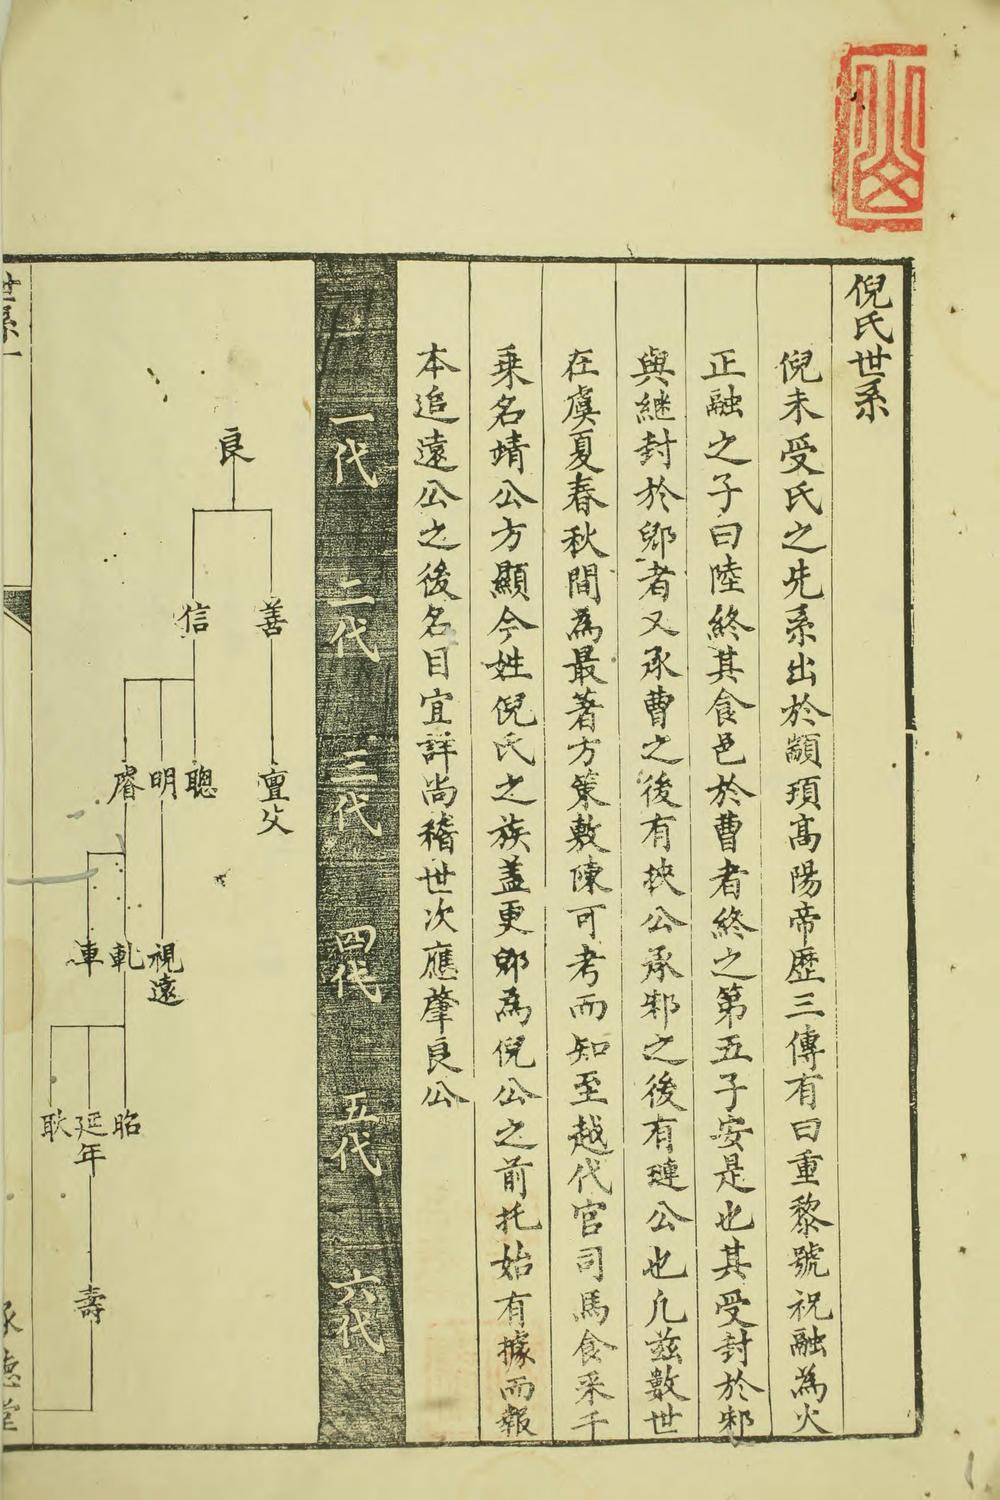 倪氏世系
倪未受氏之先系出於顓頊高陽帝歷三傳有曰重黎號祝融為火
正融之子曰陸終其食邑於曹者終之第五子安是也其受封於邾
與继封於郳者又承曹之後有挾公承邾之後有璉公也凡茲數世
在虞夏春秋間為最著方策敷陳可考而知至越代官司馬食采千
乘名靖公方顯今姓倪氏之族蓋更郳為倪公之前托始有據而報
本追遠公之後名目宜詳尚稽世次應肇良公
一代 二代 三代 四代 五代 六代
良
善 信
亶父 聰 明 睿
視遠 軏 車
昭 延年 耿
壽
世系一
承德堂